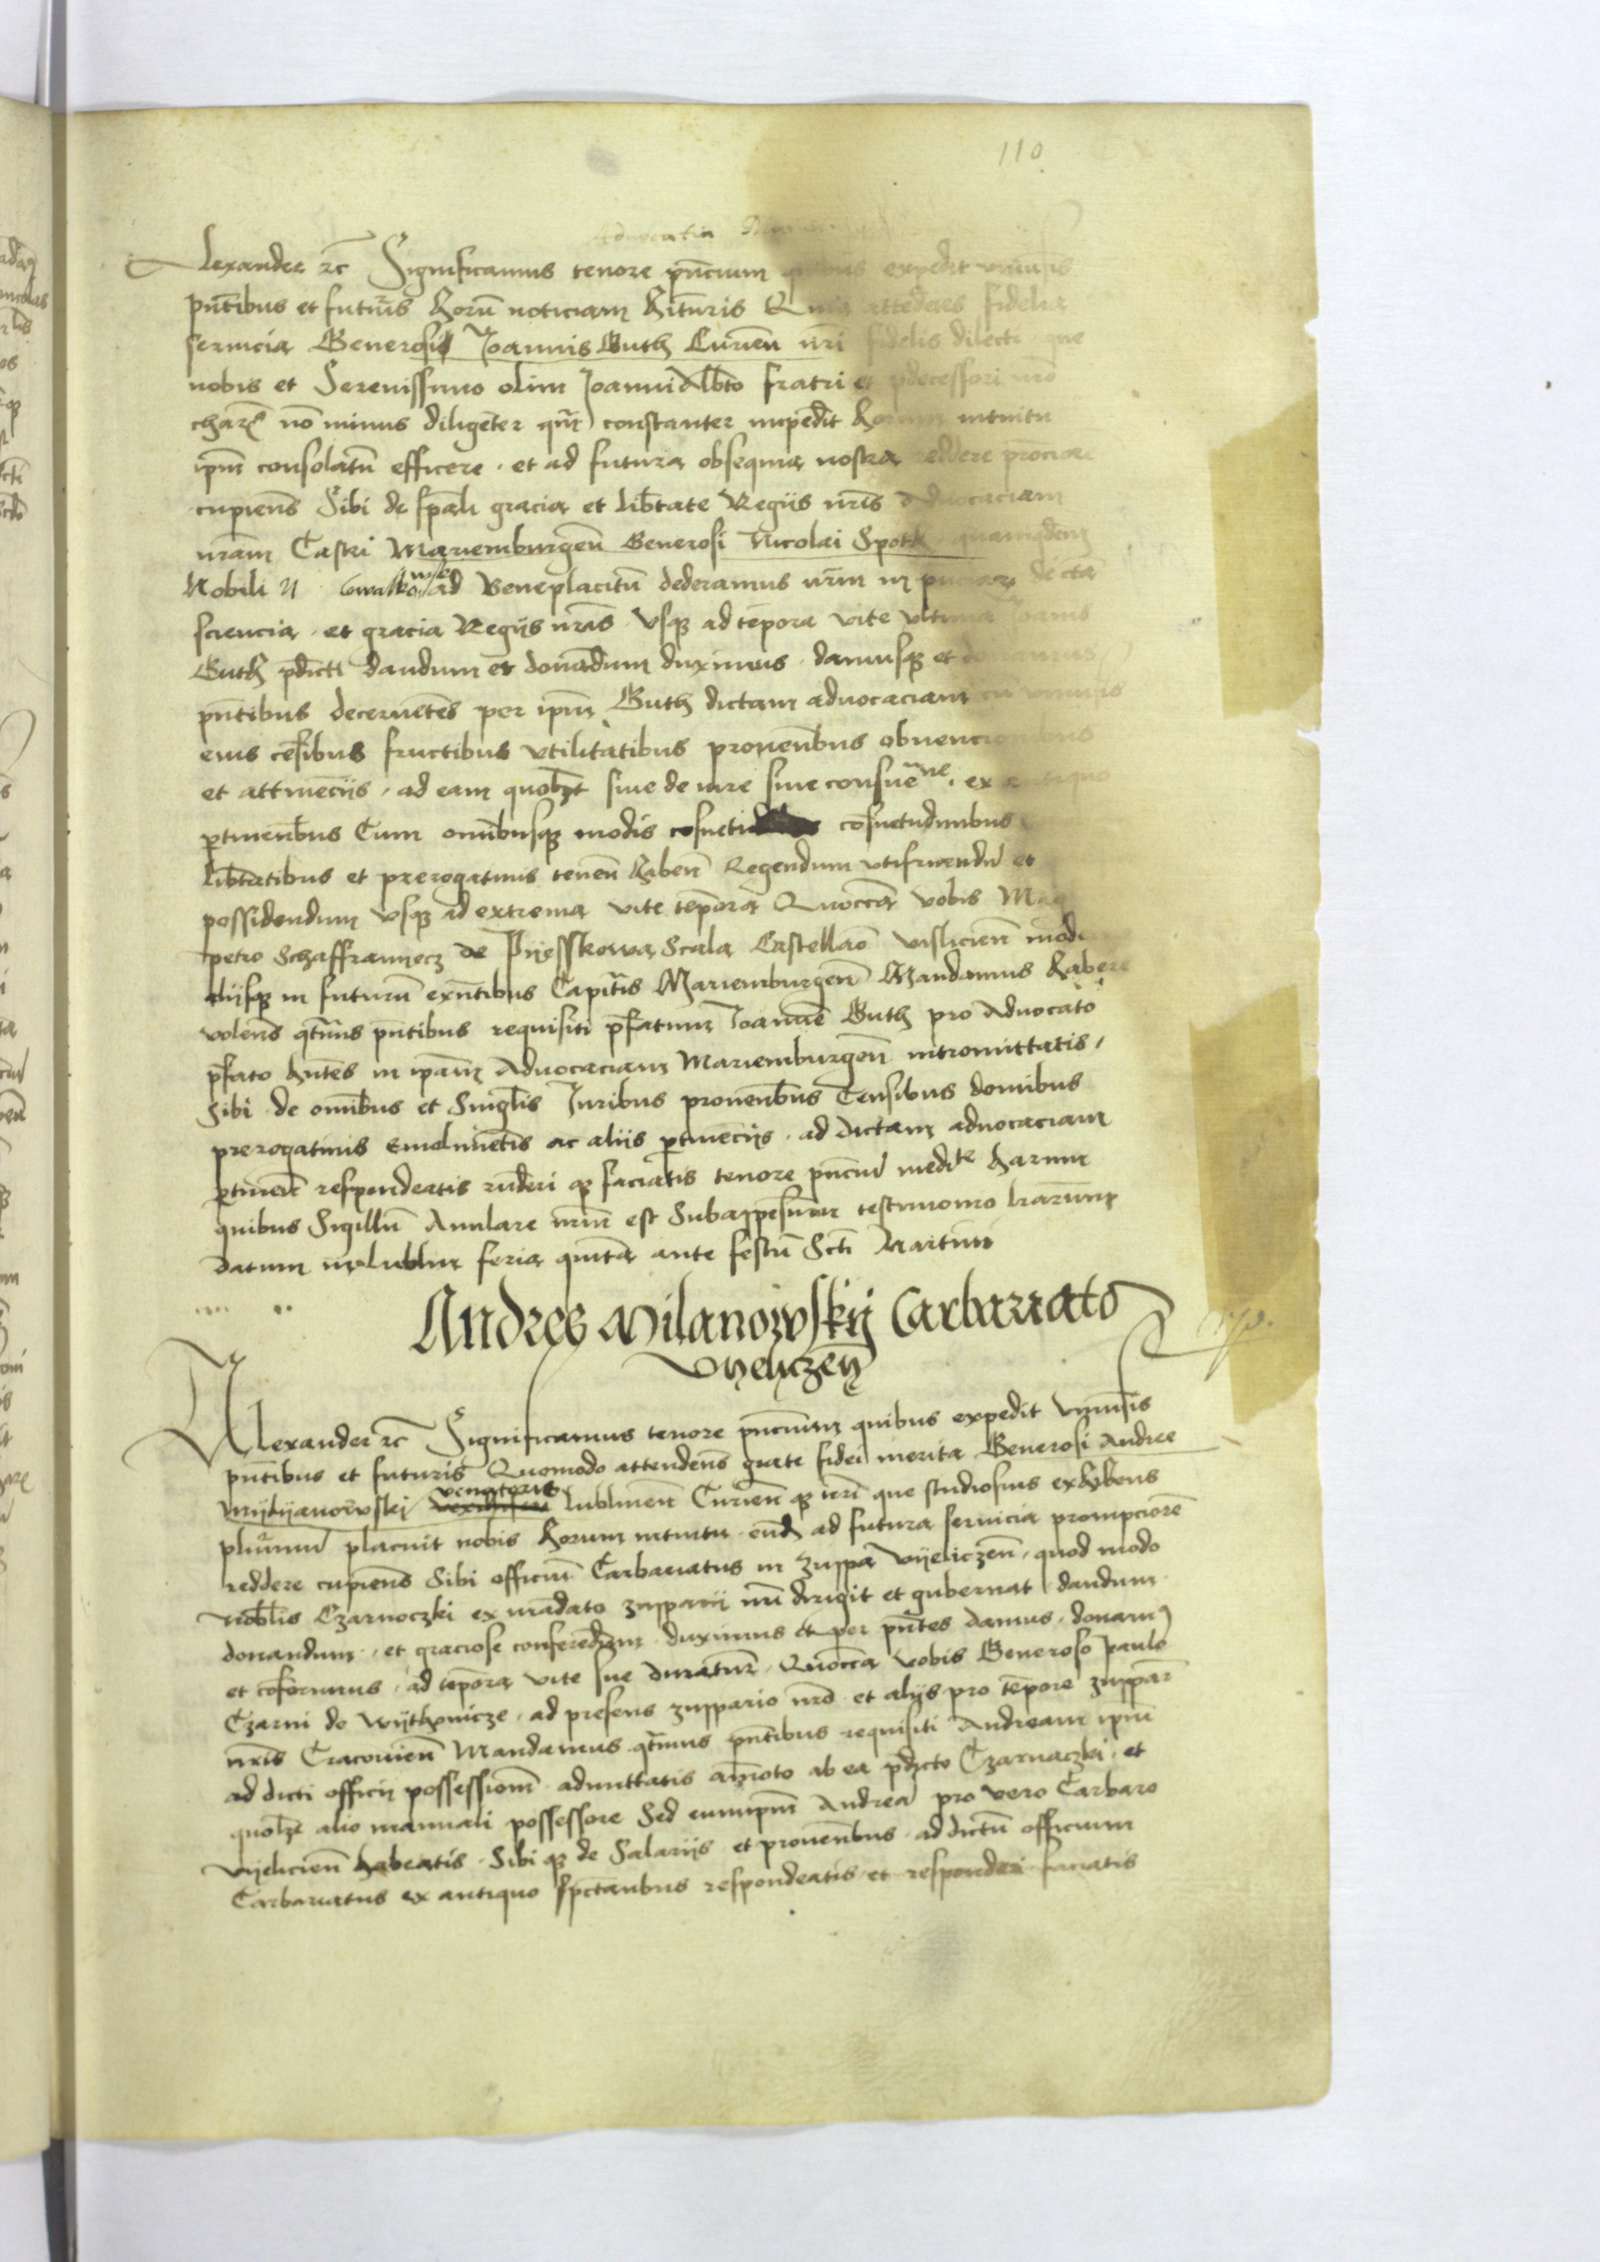 110
Advocatia
Alexander rc Significamus tenore pñcium quibus expedit vniuersis
pñtibus et futuris horũ noticiam hituris Quia attẽdẽtes fidelia
seruicia Generosi Joannis Guth Curieñ nri fidelis dilecti que
nobis et Serenissimo olim Joanni Albto fratri et pdecessori nro
charo nõ minus diligẽter qm̃ constanter impẽdit horum intuitu
ipm̃ consolatũ efficere . et ad futura obsequia nostra reddere
cupiens̃ Sibi de sp̃ali gracia et libtate Regijs nr̃is Aduocaciam
nrãm Castri Mariemburgeñ Generosi Nicolai Spoth quamqdem
Nobili N ad Beneplacitũ dederamus nrm̃ in
sciencia . et gracia Regijs nr̃is vsqꝫ ad tẽpora vite vltima Joanis
Guth pdicti dandum et donãdum duximus . damusqꝫ et donamus
pñtibus decernẽtes per ipm̃ Guth dictam aduocaciam cũ vniuersis
eius cẽsibus fructibus vtilitatibus prouentibus obuencionibus
et attinẽcijs . ad eam quolꝫt siue de iure siue consuẽne . ex antiquo
ptinentibus Cum omĩbusqꝫ modis cõsuetudinibus
libtatibus et prerogatiuis teneñ habeñ Regendum vtifruendũ et
possidendum vsqꝫ ad extrema vite tẽpora Quocca vobis Mag
petro Schaffranijecz de Pijesskowa Scala Castellaõ vislicieñ moderno
alijsqꝫ in futurũ exñtibus Capitis Mariemburgeñ Mandamus habere
volens̃ qtẽnus pñtibus requisiti pfatum Joannẽ Guth pro Aduocato
pfato hñtes in ipam̃ Aduocaciam Mariemburgeñ intromittatis /
Sibi de omĩbus et Singlis Juribus prouentibus Censibus domibus
prerogatiuis Emolimẽtis ac aliis ptinẽcijs . ad dictam aduocaciam
ptineñ respondeatis rñderi qꝫ faciatis tenore pñcium medite harum
quibus Sigillũ Anulare nrm̃ est Subappẽsum testimonio lrarum
datum in lublin feria quita ante festũ Scti Martini
Andree Milanowskij Carbariato
Vijeliczeñ
Alexander rc Significamus tenore pñcium quibus expedit vniuersis
pñtibus et futuris Quomodo attendens̃ grate fidei merita Generosi Andree
Mijlijanowski venatoris lublineñ Curieñ qꝫ nri que studiosius exhibens
plurimũ placuit nobis horum intuitu eũdꝫ ad futura seruicia prompciorẽ
reddere cupiens̃ Sibi officiũ Carbariatus in Zuppa vijeliczeñ . quod modo
noblis Czarnoczki ex mãdato zupparij nri dirigit et gubernat . dandum
donandum . et graciose conferẽdum duximus et per pñtes damus . donam9
et cõferimus . ad tẽpora vite sue duratuř . Quocca vobis Generoso paulo
Czarni de Wijthowicze . ad presens zuppario nrõ et alijs pro tẽpore zuppař
nris Cracouieñ Mandamus qtẽnus pñtibus requisiti Andream ipm̃
ad dicti officij possessionẽ admittatis amõto ab ea pdicto Czarnaczki . et
quolꝫt alio manuali possessore Sed eumipm̃ Andreã pro vero Carbaro
vijelicieñ habeatis . Sibi qꝫ de Salarijs et prouentibus ad dictũ officium
Carbariatus ex antiquo spectantibus respondeatis et responderi faciatis